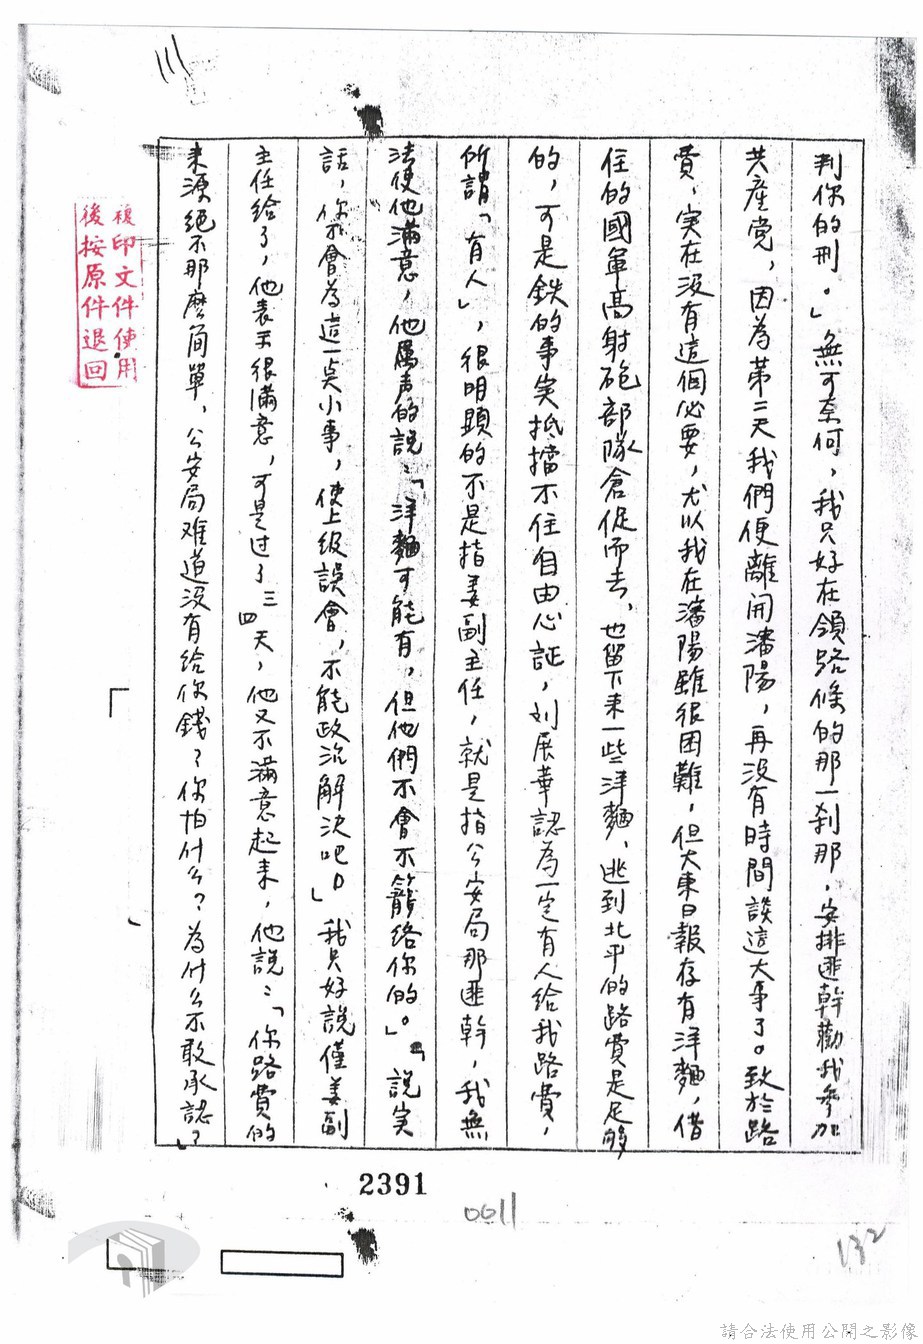 判你的刑。」無可奈何，我只好在領路條的那一刹那，安排匪幹勸我參加
共產党，因為第二天我們便離開瀋陽，再沒有時間談這大事了。致於路
費，实在沒有這個必要，尤以我在瀋陽雖很困難，但大東日報存有洋麵，借
住的國軍高射砲部隊倉促而去，也留下来一些洋麵，逃到北平的路費是足夠
的，可是鉄的事实抵擋不住自由心証，刘展華認為一定有人给我路費，
所謂「有人」，很明顕的不是指姜副主任，就是指公安局那匪幹，我無
法使他滿意，他厲声的說：「洋麵可能有，但他們不會不籠络你的。」「說实
話，你不會為這一点小事，使上级誤會，不能政治解决吧。」我只好說僅姜副
主任给了，他表示很滿意，可是过了三四天，他又不滿意起来，他說：「你路費的
来源絕不那麽简單，公安局难道没有给你錢？你怕什么？為什么不敢承認？」
複印文件使用
後按原件退回
2391
0611
132
請合法使用公開之影像